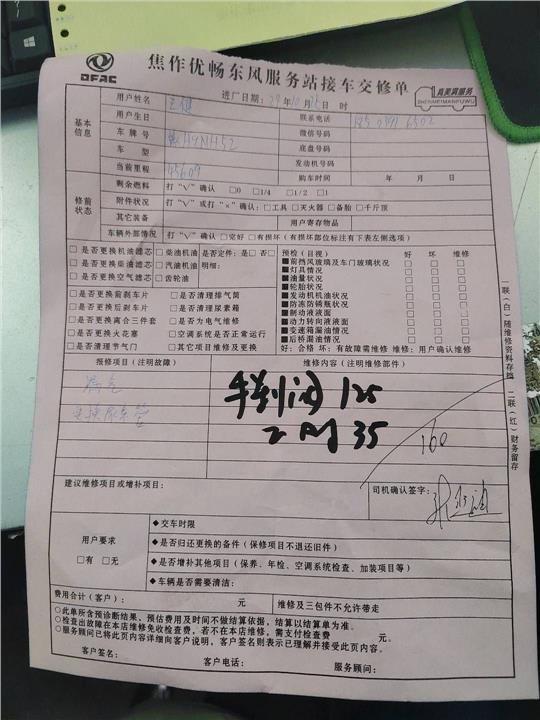 DFAC
焦作优畅东风服务站接车交修单
真美真服务
SHENMEIMANFUWU
基本信息
用户姓名 进厂日期: 年10月25日 时
用户生日 联系电话
车牌号 H9NH52 微信号码
车型 底盘号码
当前里程 45609 发动机号码
购车时间 年 月 日
修前状态
剩余燃料 打“√”确认 □0 □1/4 □1/2 □1
附件状况 打“√”或打“×”确认:□工具 □灭火器 □备胎 □千斤顶
其它装备 用户寄存物品
车辆外部情况 打“√”确认 □完好 □有损坏(有损坏部位标注有下表左侧选项)
□是否更换机油滤芯 □柴油机油 是否定件: 是□ 否□
□是否更换柴油滤芯 □汽油机油 明细:
□是否更换空气滤芯 □齿轮油
□是否更换前刹车片 □是否清理排气筒
□是否更换后刹车片 □是否清理尿素箱
□是否更换离合三件套 □是否为电气维修
□是否更换火花塞 □空调系统是否正常运行
□是否清理节气门 □其它项目维修及更换
预检(目视) 好 坏 维修
■前挡风玻璃及车门玻璃状况 □ □ □
■灯具情况 □ □ □
■油量状况 □ □ □
■轮胎状况 □ □ □
■发动机机油状况 □ □ □
■防冻防锈瓶状况 □ □ □
■制动液液面 □ □ □
■动力转向液液面 □ □ □
■变速箱漏油情况 □ □ □
■后桥漏油情况 □ □ □
好:合格 坏:有故障需维修 维修:用户确认维修
报修项目(注明故障) 维修内容(注明维修部件)
125
35
160
建议维修项目或增补项目: 司机确认签字:
用户要求
□有 □无
◆交车时限
◆是否归还更换的备件(保修项目不退还旧件)
◆是否增补其他项目(保养、年检、空调系统检查、加装项目等)
◆车辆是否需要清洁:
费用合计(客户): 元 维修及三包件不允许带走
○此单所含预诊断结果,预估费用及时间不做结算依据,结算以结算单为准。
○检查出故障在本店维修免收检查费,若不在本店维修,需支付检查费 元。
○服务顾问已将此页内容详细向客户说明,客户签名则表示已理解并接受此页内容。
客户签名: 客户电话: 服务顾问:
一联(白)随维修资料存档 二联(红)财务留存